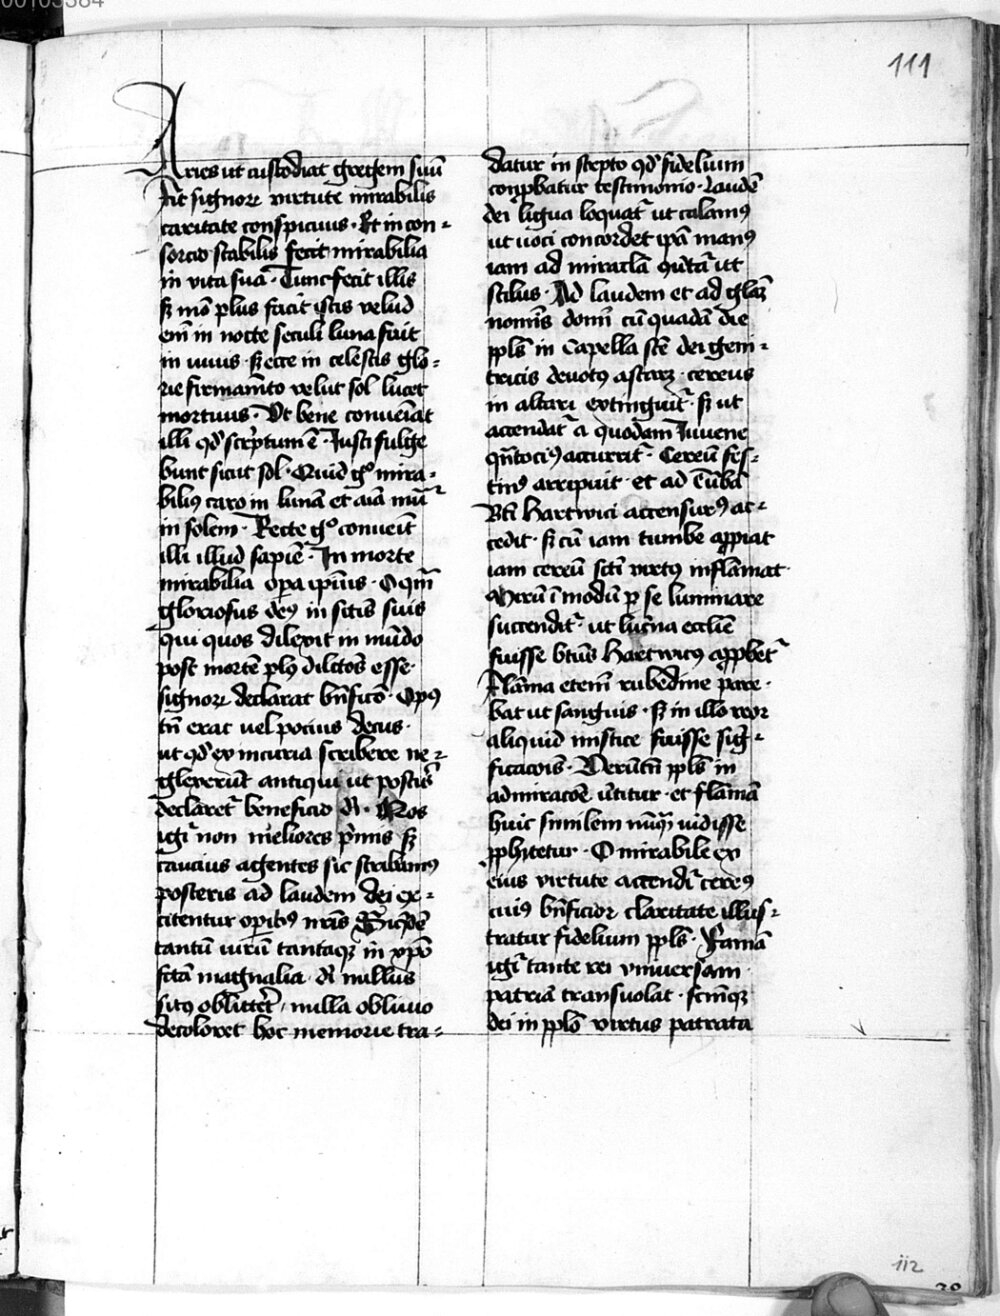 00103384
111
Aries ut custodiat gregem suū
fit signoꝝ virtute mirabilis
caritate conspicuus · Et in con-
sorcio stabilis fecit mirabilia
in vita sua · Tunc fecit illis
sꝫ mō plus facit istis velud
em̄ in nocte seculi luna fuit
in vivus · sꝫ ecce in celestis glo-
rie firmamēto velut sol lucet
mortuus · Ut bene conveniat
illi qd̄ scriptum ē · Justi fulge
bunt sicut sol · Quid gͦ mira-
bilius caro in lunā et aīa
in solem · Recte gͦ convenit
illi illud sapiē · In morte
mirabilia opa ipīus · O qm̄
gloriosus deꝰ in sctis suis
qui quos dilexit in mūdo
post mortē dilctōs esse ·
signoꝝ declarat bn̄ficio · Opꝰ
tn̄ erat vel pocius decus ·
ut qd̄ ex incuria scribere ne-
glexerūt antiqui ut postis
declaret̄ beneficio · Nos
igr̄ non meliores pīmis sꝫ
caucius agentes sic scribamꝰ
posteris ad laudem dei ex-
citentur opibꝰ nrīs
tantū virū tantaqꝫ in xpō
sctā magnalia · nullius
sitꝰ oblitt̄et , nulla oblivio
decoloret hoc memorie tra-
datur in scepto qd̄ fidelium
conpbatur testimonio · Laudē
dei ligua loquat̄ ut calamꝰ
ut voci concordet ipā manꝰ
iam ad miracl̄a ut
stilus · Ad laudem et ad glaꝫ
nomīs domī cū quadā die
ppls̄ in Capella scē dei geni-
tricis devotꝰ astaꝝ · cereus
in altari extinguit̄ · sꝫ ut
accendat̄ a quodam Juvene
qn̄tociꝰ accurrit · Cereū fes-
tinꝰ arripuit · et ad tūbā
Bti Hartwici accensurꝰ ac-
cedit · sꝫ cū iam tumbe appiat
iam cereū scti virtꝰ inflāmat
Mirū ī modū p se luminare
succendit̄ · ut lucīna ecclie
fuisse btūs Hartwicꝰ appbet̄
Flāma etem̄ rubedine pare ·
bat ut sanguis · sꝫ in illo reor
aliquid mistice fuisse sig-
ficacōis · Verūtn̄ ppls̄ in
admiracōē v̄titur · et flāmā
huic similem nūqͣ vidisse
pphitetur · O mirabile ex
eius virtute accendi cereꝰ
cuiꝰ bn̄ficioꝝ claritate illus-
tratur fidelium ppls̄ · Famā
igr̄ tante rei vniversam
patriā transvolat ·
dei in pplō virtus patrata
112